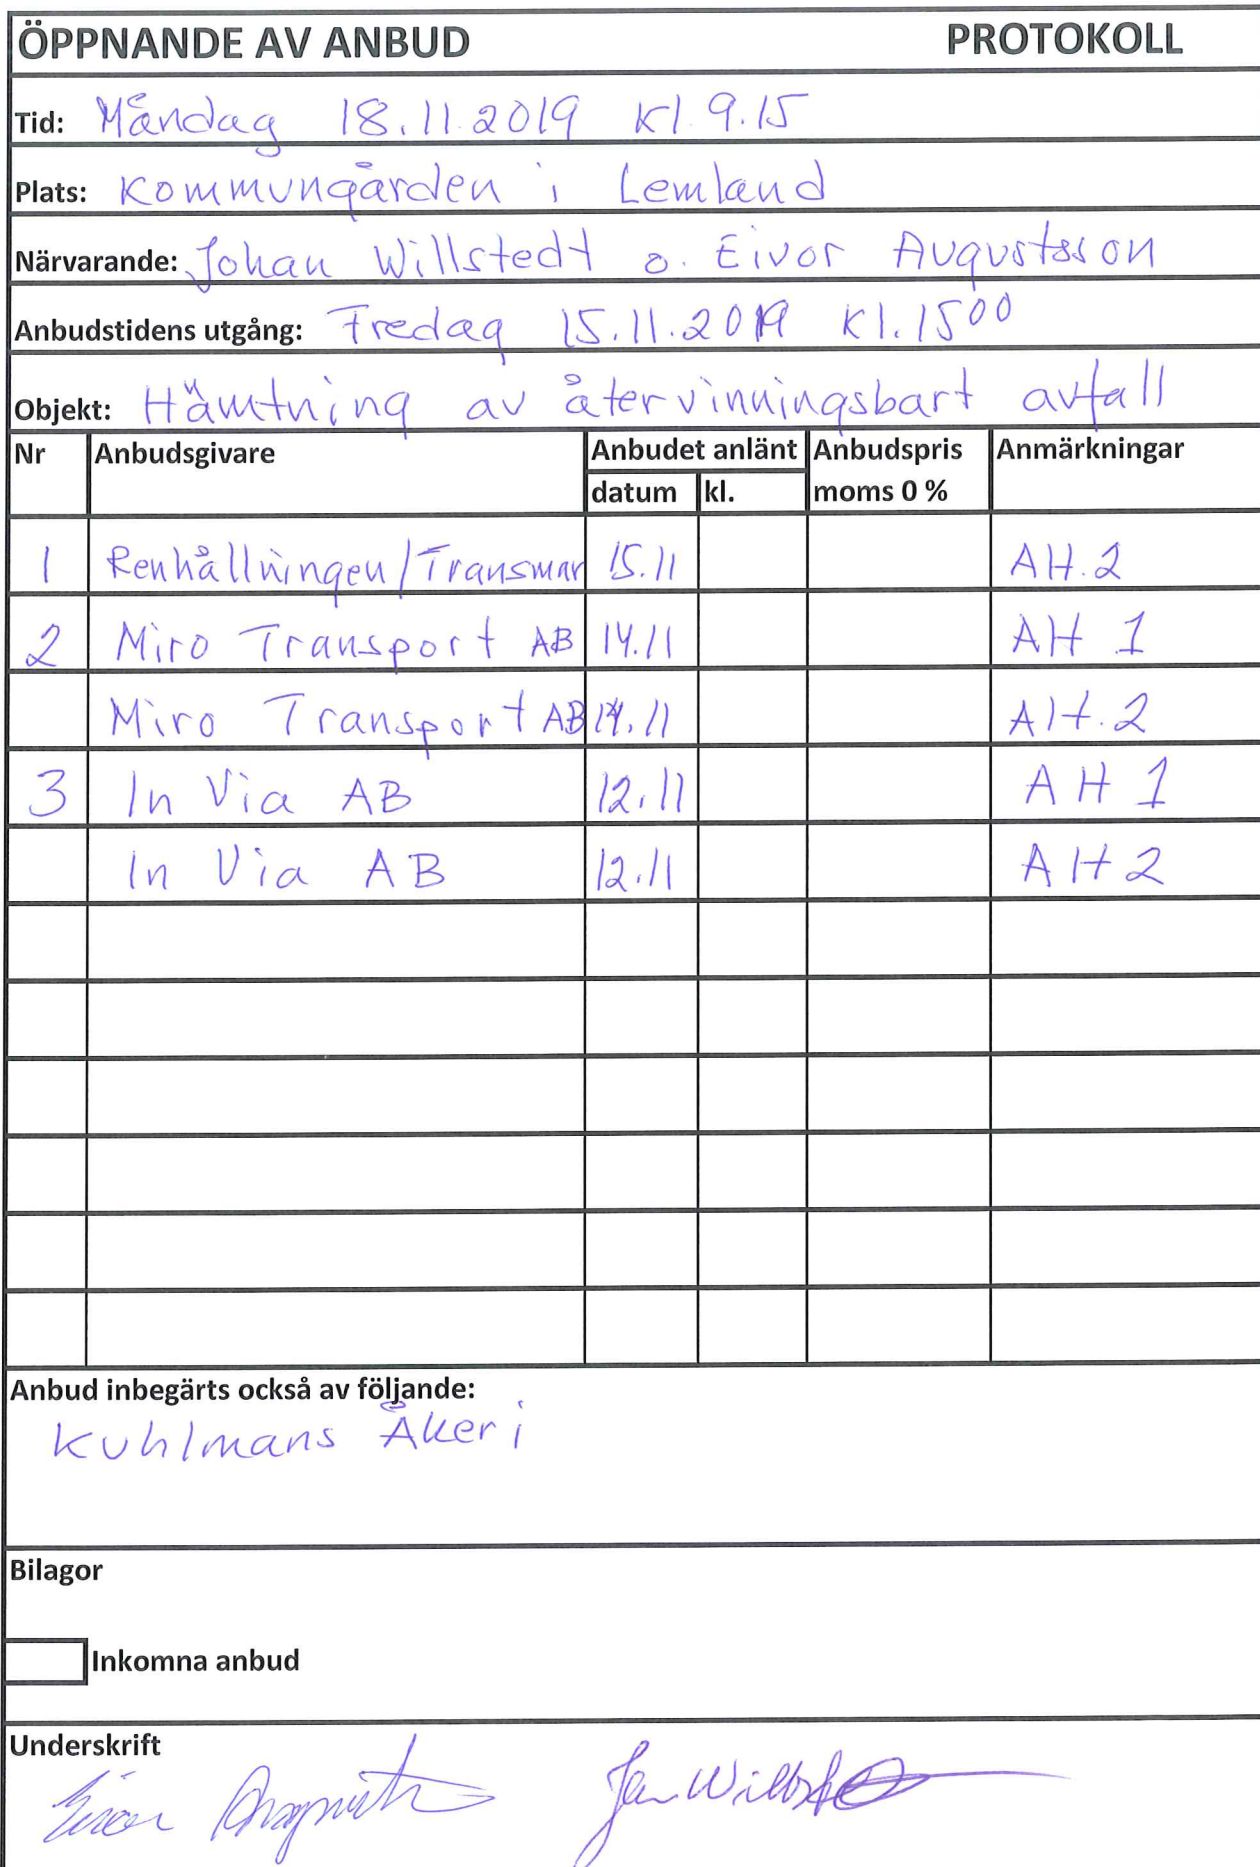 ÖPPNANDE AV ANBUD PROTOKOLL
Tid: Måndag 18.11.2019 Kl. 9.15
Plats: Kommungården i Lemland
Närvarande: Johan Willstedt o. Eivor Augustsson
Anbudstidens utgång: Fredag 15.11.2019 Kl. 15 00
Objekt: Hämtning av återvinningsbart avfall
Nr Anbudsgivare Anbudet anlänt Anbudspris Anmärkningar
datum kl. moms 0 %
1 Renhållningen/Transmar 15.11 AH.2
2 Miro Transport AB 14.11 AH 1
Miro Transport AB 14.11 AH.2
3 In Via AB 12.11 AH 1
In Via AB 12.11 AH 2
Anbud inbegärts också av följande:
Kuhlmans Åkeri
Bilagor
Inkomna anbud
Underskrift